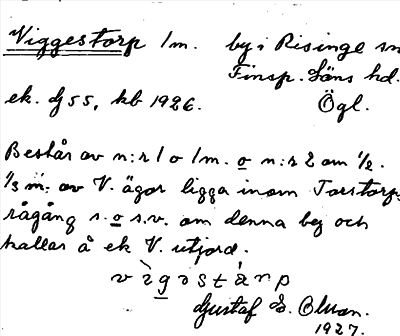 Viggestorp 1m. by i Risinge sn
Finsp. Läns hd.
ek. dj 55, kb 1926. Ögl.
Består av n:r 1 o 1m. o n:r 2 om 1/2.
1/3 m: av V. ägor ligga inom Torstorps
rågång s. o s.v. om denna by och
kallas å ek V. utjord.
vìgəstárp
Gustaf E. Olsson.
1927.